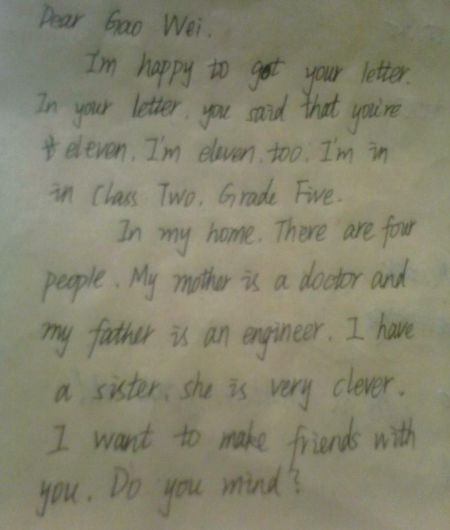 Dear Gao Wei.
I'm happy to get your letter.
In your letter, you said that you're
eleven. I'm eleven, too. I'm in
in Class Two. Grade Five.
In my home. There are four
people. My mother is a doctor and
my father is an engineer. I have
a sister. she is very clever.
I want to make friends with
you. Do you mind?